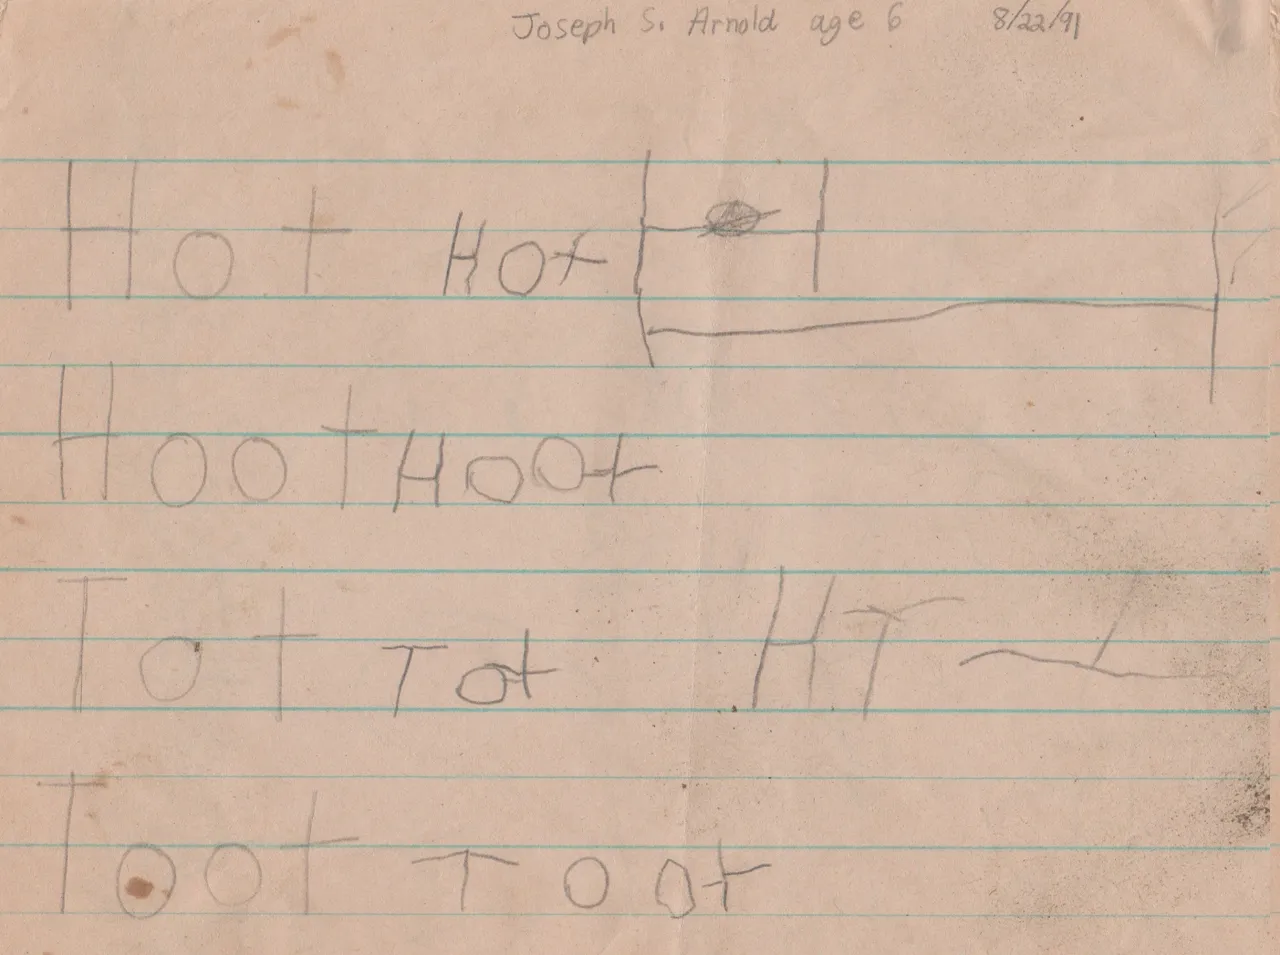 Joseph S. Arnold age 6 8/22/91
Hot Hot H
Hoot Hoot
Tot Tot HT
Toot Toot